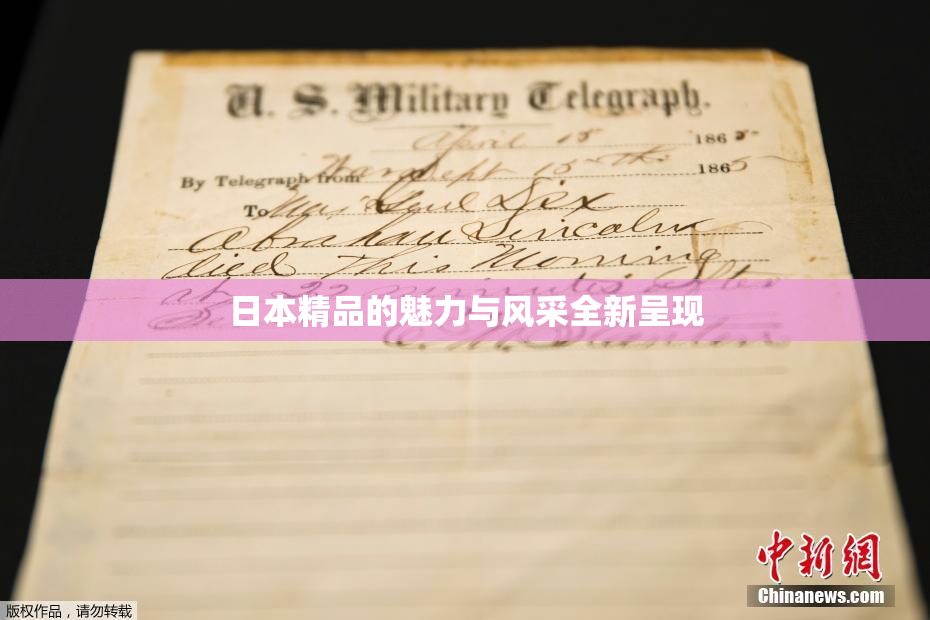 U. S. Military Telegraph.
April 15 1865
By Telegraph from War Dept 15th 1865
To Maj Genl Dix
Abraham Lincoln
died This Morning
at 22 minutes after
日本精品的魅力与风采全新呈现
E. M. Stanton
中新网
Chinanews.com
版权作品，请勿转载